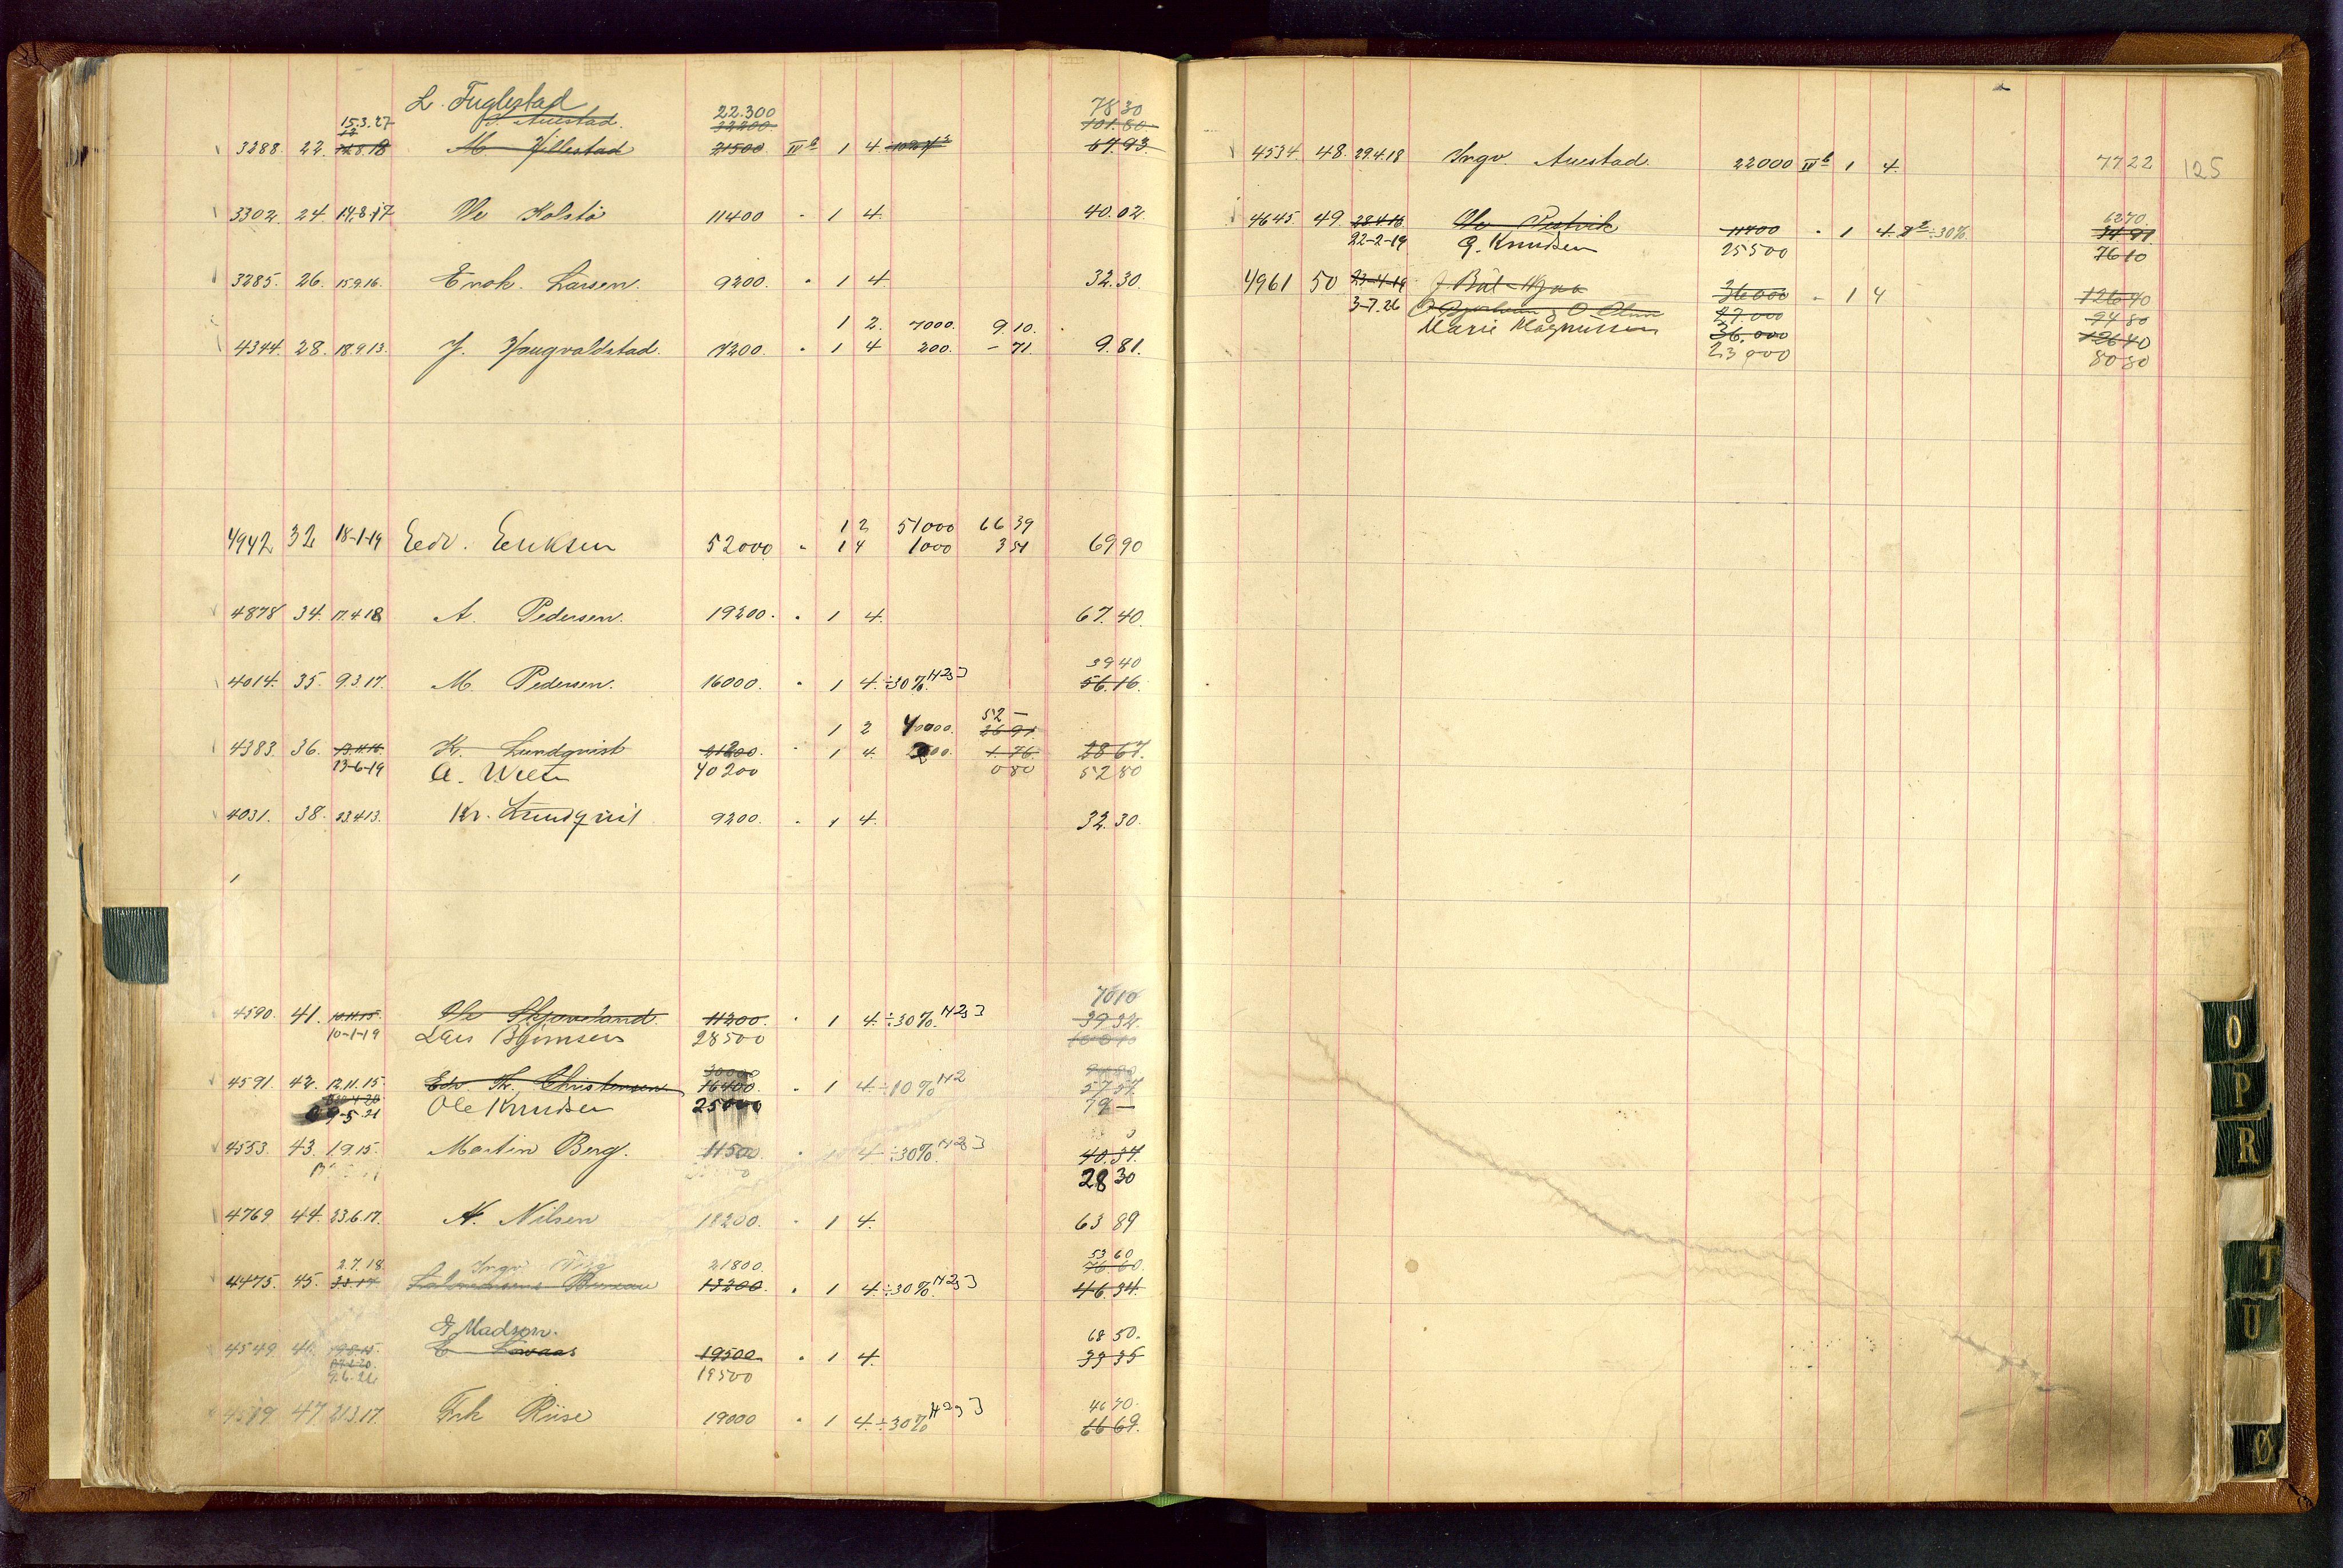 L. Fuglestad
15.3.27 Auestad. 22.300 78 30
32200 101.80
3288 22 M 21500 IV b 1 4 67.93
3302 24 14.8.17 Ole Kolstö 11400 " 1 4 40.02
3285. 26. 15.9.16. Enok. Larsen 9200. " 1 4 32.30
1 2. 7000. 9.10.
4344 28. 18.9.13. J. Haugvaldstad. 7200. " 1 4 200. – 71 9.81.
1 2 51000 66 39
4942 32 18-1-19 Edv. Eriksen 52000 " 1 4 1000 3 51 69 90
4878 34. 17.4.18 A. Pedersen. 19200. " 1 4. 67.40.
39 40
4014. 35. 9.3.17. M. Pedersen. 16000. " 1 4. ÷30% H2s] 56.16.
52 –
1 2 40000. 26 91
4383 36. Kr. Lundqvist 21200. " 1 4. 200. 1.76. 28 67.
13-6-19 A. 40200 0 80 52 80
4031. 38. 23.4.13. Kr. Lundqvist 9200. " 1 4. 32.30.
70 10
4590. 41. 10.11.15. Ole 11200. " 1 4. ÷30% H2s] 39 32.
10-1-19 Lars Bjørnsen 28500 100 10
30000
4591. 42. 12.11.15. Edv Th. Christensen 16400. " 1 4 ÷10% H2 57 57.
9-5-21 Ole Knudsen 25000 79 –
4553. 43. 1.9.15. Martin Berg. 11500. " 4 ÷30% H2s] 40.37.
28 30
4769 44. 23.6.17. N. Nilsen 18200. " 1 4. 63 89
53 60
2.7.18. Ingv. 21800. 76.60.
4475. 45. Bureau 13200. " 1 4. ÷30% H2s] 46.34.
G Madson. 68 50.
4549 46 19500. " 1 4.
9.6.26 19500
46 70.
47 21.3.17. Frk Riise 19000 " 1 4. ÷30% H2s] 66 69.
4534. 48. 29.4.18 Ingv. Auestad. 22000 IV b 1 4. 77 22 125
62 70.
4645. 49. 28.4.16 Ole 11400 " 1 4. ÷30%
22-2-19 G. Knudsen 25500 76 10
4961 50 23-4-19 36000 " 1 4 126 40
3-7.26 27.000 94 80
Marie Magnussen 36.000 126 40
23,000 80 80
O
P
R
T
U
Ø